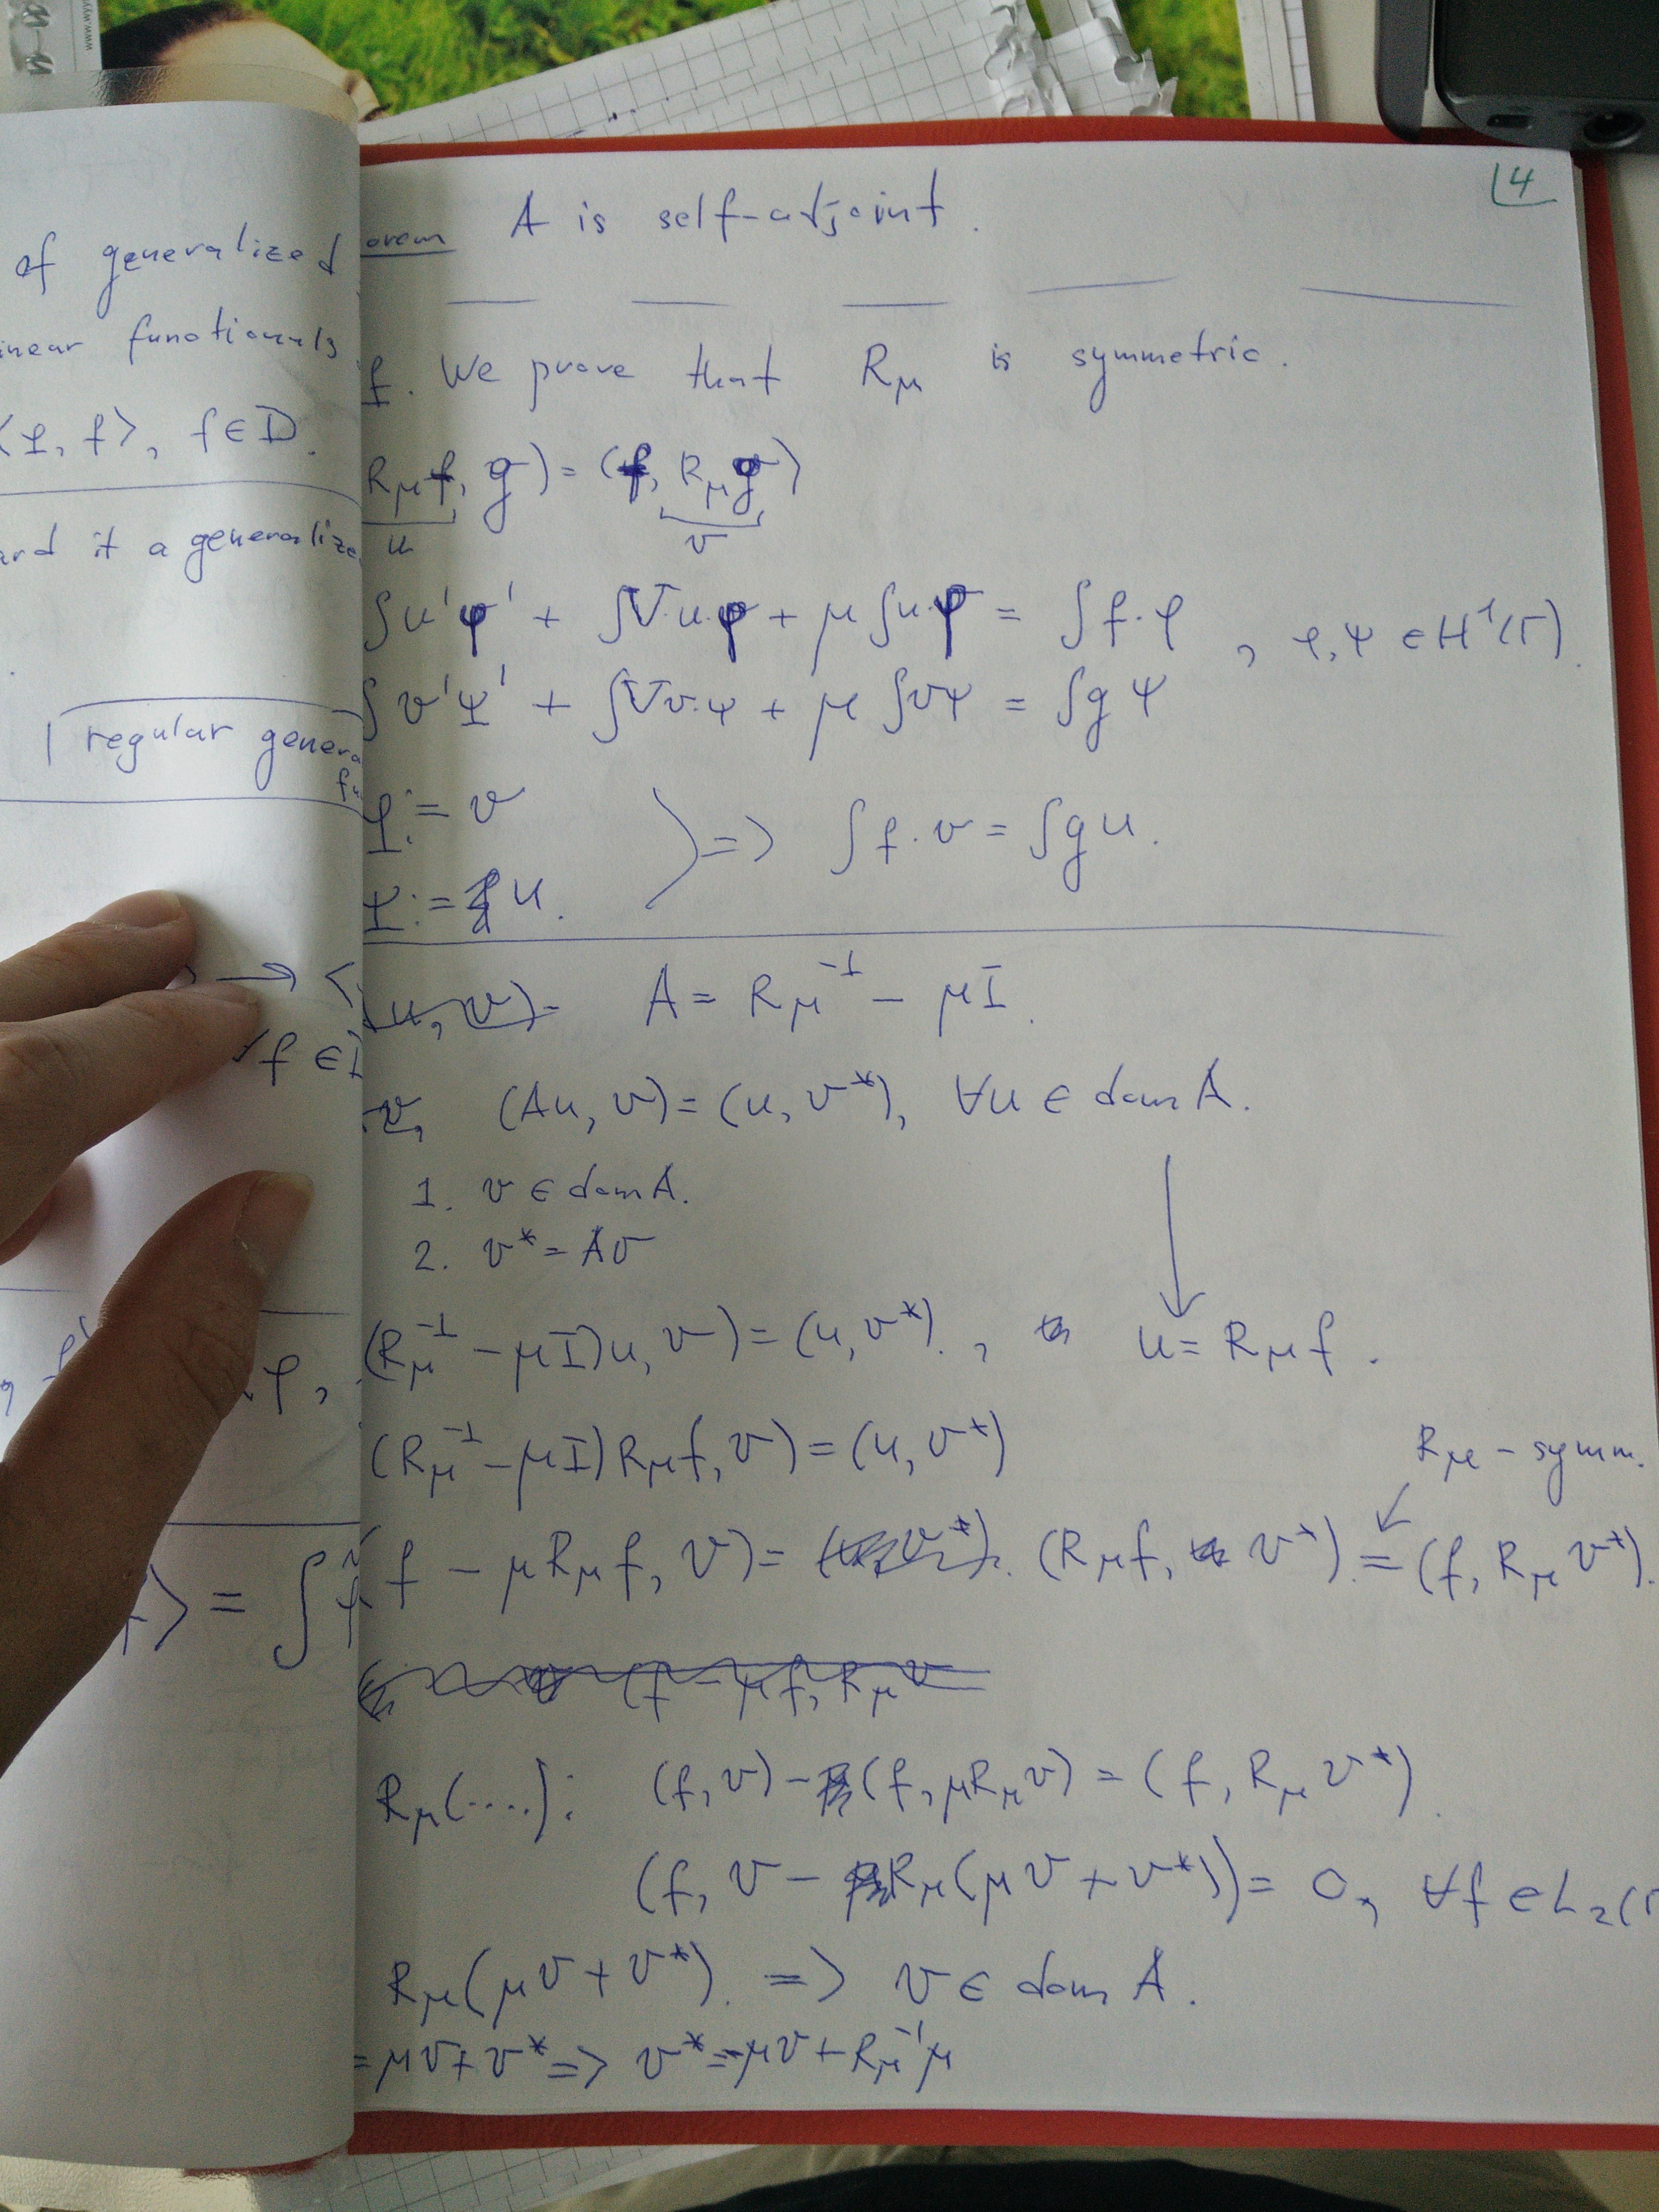 of generalized
inear functionals
⟨φ, f⟩, f∈D.
ard it a generalize
regular genera
→ <
f ∈
φ,
⟩ = ∫
4
orem A is self-adjoint.
f. We prove that Rμ is symmetric.
Rμf, g) = (f, Rμg)
u v
∫u'φ' + ∫V·u·φ + μ∫u·φ = ∫f·φ , φ,ψ ∈ H¹(Γ).
∫v'ψ' + ∫Vv·ψ + μ∫vψ = ∫gψ
φ:= v
ψ:= u.
=> ∫f·v = ∫gu.
(u, v)= A = Rμ⁻¹ − μI.
v, (Au, v) = (u, v*), ∀u ∈ dom A.
1. v ∈ dom A.
2. v* = Av
(Rμ⁻¹ − μI)u, v) = (u, v*)., u = Rμf.
(Rμ⁻¹ − μI)Rμf, v) = (u, v*)
Rμ − symm.
(f − μRμf, v) = (Rμf, v*). = (f, Rμv*).
(f − μf, Rμv
Rμ(....): (f, v) − (f, μRμv) = (f, Rμv*).
(f, v − Rμ(μv + v*)) = 0, ∀f ∈ L₂(Γ
Rμ(μv + v*). => v ∈ dom A.
= μv + v* => v* = −μv + Rμ⁻¹μ